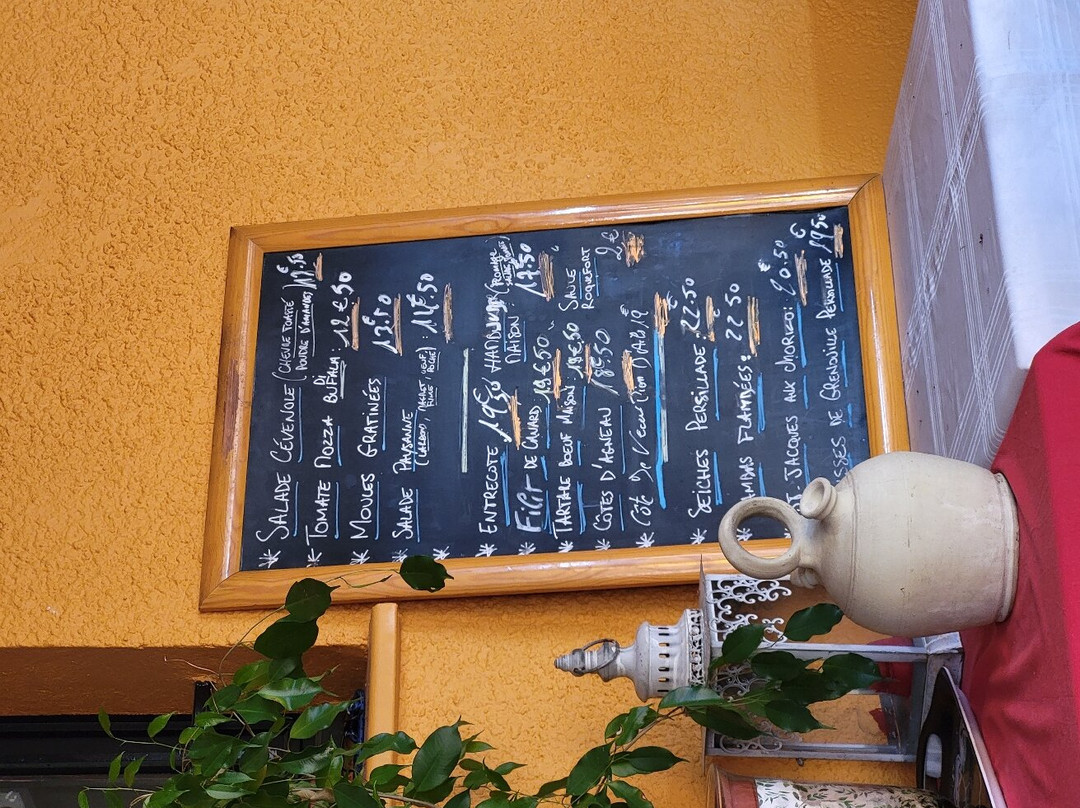 * SALADE CÉVENOLE (CHEVRE TOMATE
POUDRE D'AMANDES)
* TOMATE MOZZA DI BUFALA: 12 € 50
* MOULES GRATINÉES 13.50
* SALADE PAYSANNE : 14€.50
(LARDONS, MAGRET FUMÉ, OEUF POCHÉ)
*
* ENTRECOTE 19€50 HAMBURGER (FROMAGE
MAISON 17.50
* FILET DE CANARD: 19€50
* TARTARE BOEUF MAISON 18€50 SAUCE
ROQUEFORT
* CÔTES D'AGNEAU 18.50 2€
* CÔTE DE 19€
* SEICHES PERSILLADE: 22.50
AMBAS FLAMBÉES: 22 50
ST JACQUES AUX CHORIZO: 20.50 €
SSES DE GRENOUILLE PERSILLADE 19.50